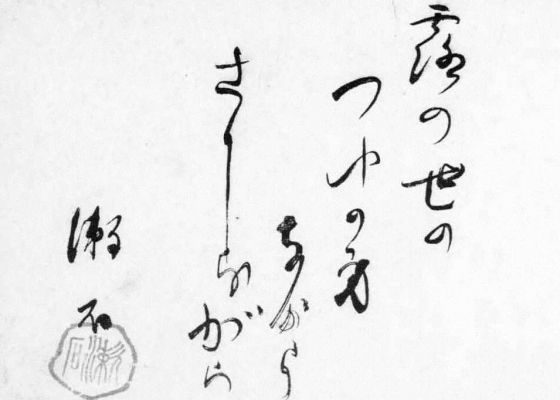 露の世の
つゆの身
ながら
さりながら
漱石
漱石